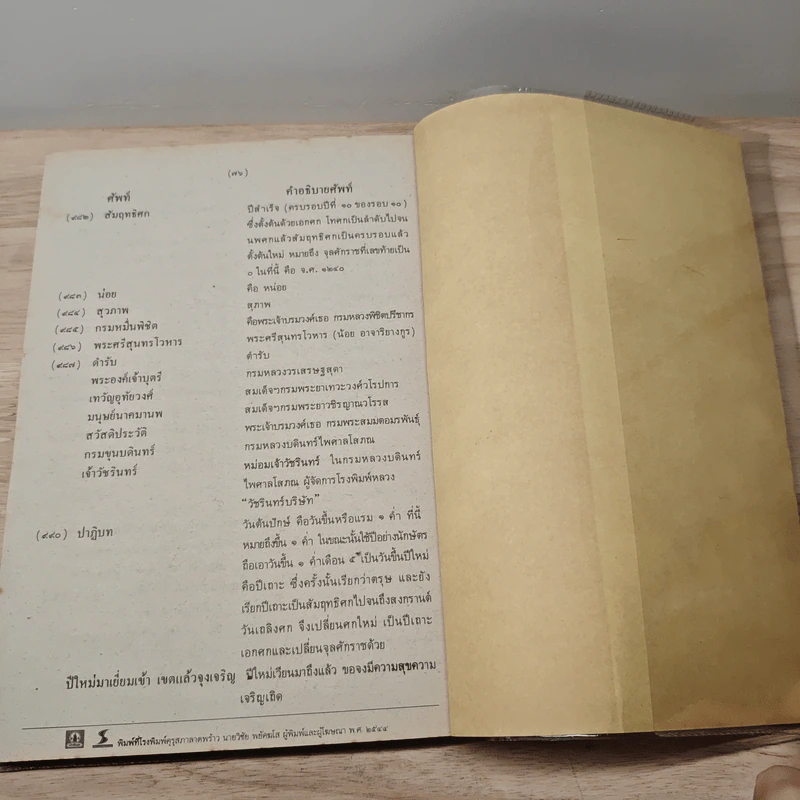 (๗๖)
ศัพท์ คำอธิบายศัพท์
(๙๘๒) สัมฤทธิศก ปีสำเร็จ (ครบรอบปีที่ ๑๐ ของรอบ ๑๐)
ซึ่งตั้งต้นด้วยเอกศก โทศกเป็นลำดับไปจน
นพศกแล้วสัมฤทธิศกเป็นครบรอบแล้ว
ตั้งต้นใหม่ หมายถึง จุลศักราชที่เลขท้ายเป็น
๐ ในที่นี้ คือ จ.ศ. ๑๒๔๐
(๙๘๓) น่อย คือ หน่อย
(๙๘๔) สุวภาพ สุภาพ
(๙๘๕) กรมหมื่นพิชิต คือพระเจ้าบรมวงศ์เธอ กรมหลวงพิชิตปรีชากร
(๙๘๖) พระศรีสุนทรโวหาร พระศรีสุนทรโวหาร (น้อย อาจาริยางกูร)
(๙๘๗) ดำรับ ตำรับ
พระองค์เจ้าบุตรี กรมหลวงวรเสรฐสุดา
เทวัญอุทัยวงศ์ สมเด็จฯกรมพระยาเทวะวงศ์วโรปการ
มนุษย์นาคมานพ สมเด็จฯกรมพระยาวชิรญาณวโรรส
สวัสดิประวัติ พระเจ้าบรมวงศ์เธอ กรมพระสมมตอมรพันธุ์
กรมขุนบดินทร์ กรมหลวงบดินทร์ไพศาลโสภณ
เจ้าวัชรินทร์ หม่อมเจ้าวัชรินทร์ ในกรมหลวงบดินทร์
ไพศาลโสภณ ผู้จัดการโรงพิมพ์หลวง
“วัชรินทร์บริษัท”
(๙๙๐) ปาฏิบท วันต้นปักษ์ คือวันขึ้นหรือแรม ๑ ค่ำ ที่นี้
หมายถึงขึ้น ๑ ค่ำ ในขณะนั้นใช้ปีอย่างนักษัตร
ถือเอาวันขึ้น ๑ ค่ำเดือน ๕ เป็นวันขึ้นปีใหม่
คือปีเถาะ ซึ่งครั้งนั้นเรียกว่าตรุษ และยัง
เรียกปีเถาะเป็นสัมฤทธิศกไปจนถึงสงกรานต์
วันเถลิงศก จึงเปลี่ยนศกใหม่ เป็นปีเถาะ
เอกศกและเปลี่ยนจุลศักราชด้วย
ปีใหม่มาเยี่ยมเข้า เขตแล้วจุงเจริญ ปีใหม่เวียนมาถึงแล้ว ขอจงมีความสุขความ
เจริญเถิด
พิมพ์ที่โรงพิมพ์คุรุสภาลาดพร้าว นายวิชัย พยัคฆโส ผู้พิมพ์และผู้โฆษณา พ.ศ. ๒๕๔๔